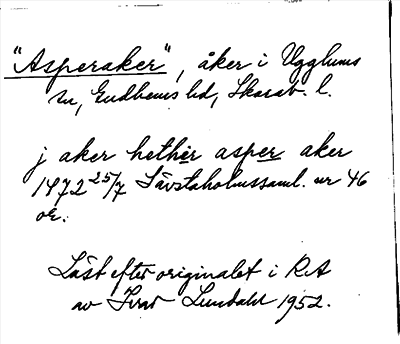 "Asperaker", åker i Ugglums
sn, Gudhems hd, Skarab. l.
j aker hethir asper aker
1472 25/7 Sävstaholmssaml. nr 46
or.
Läst efter originalet i RA
av Ivar Lundahl 1952.